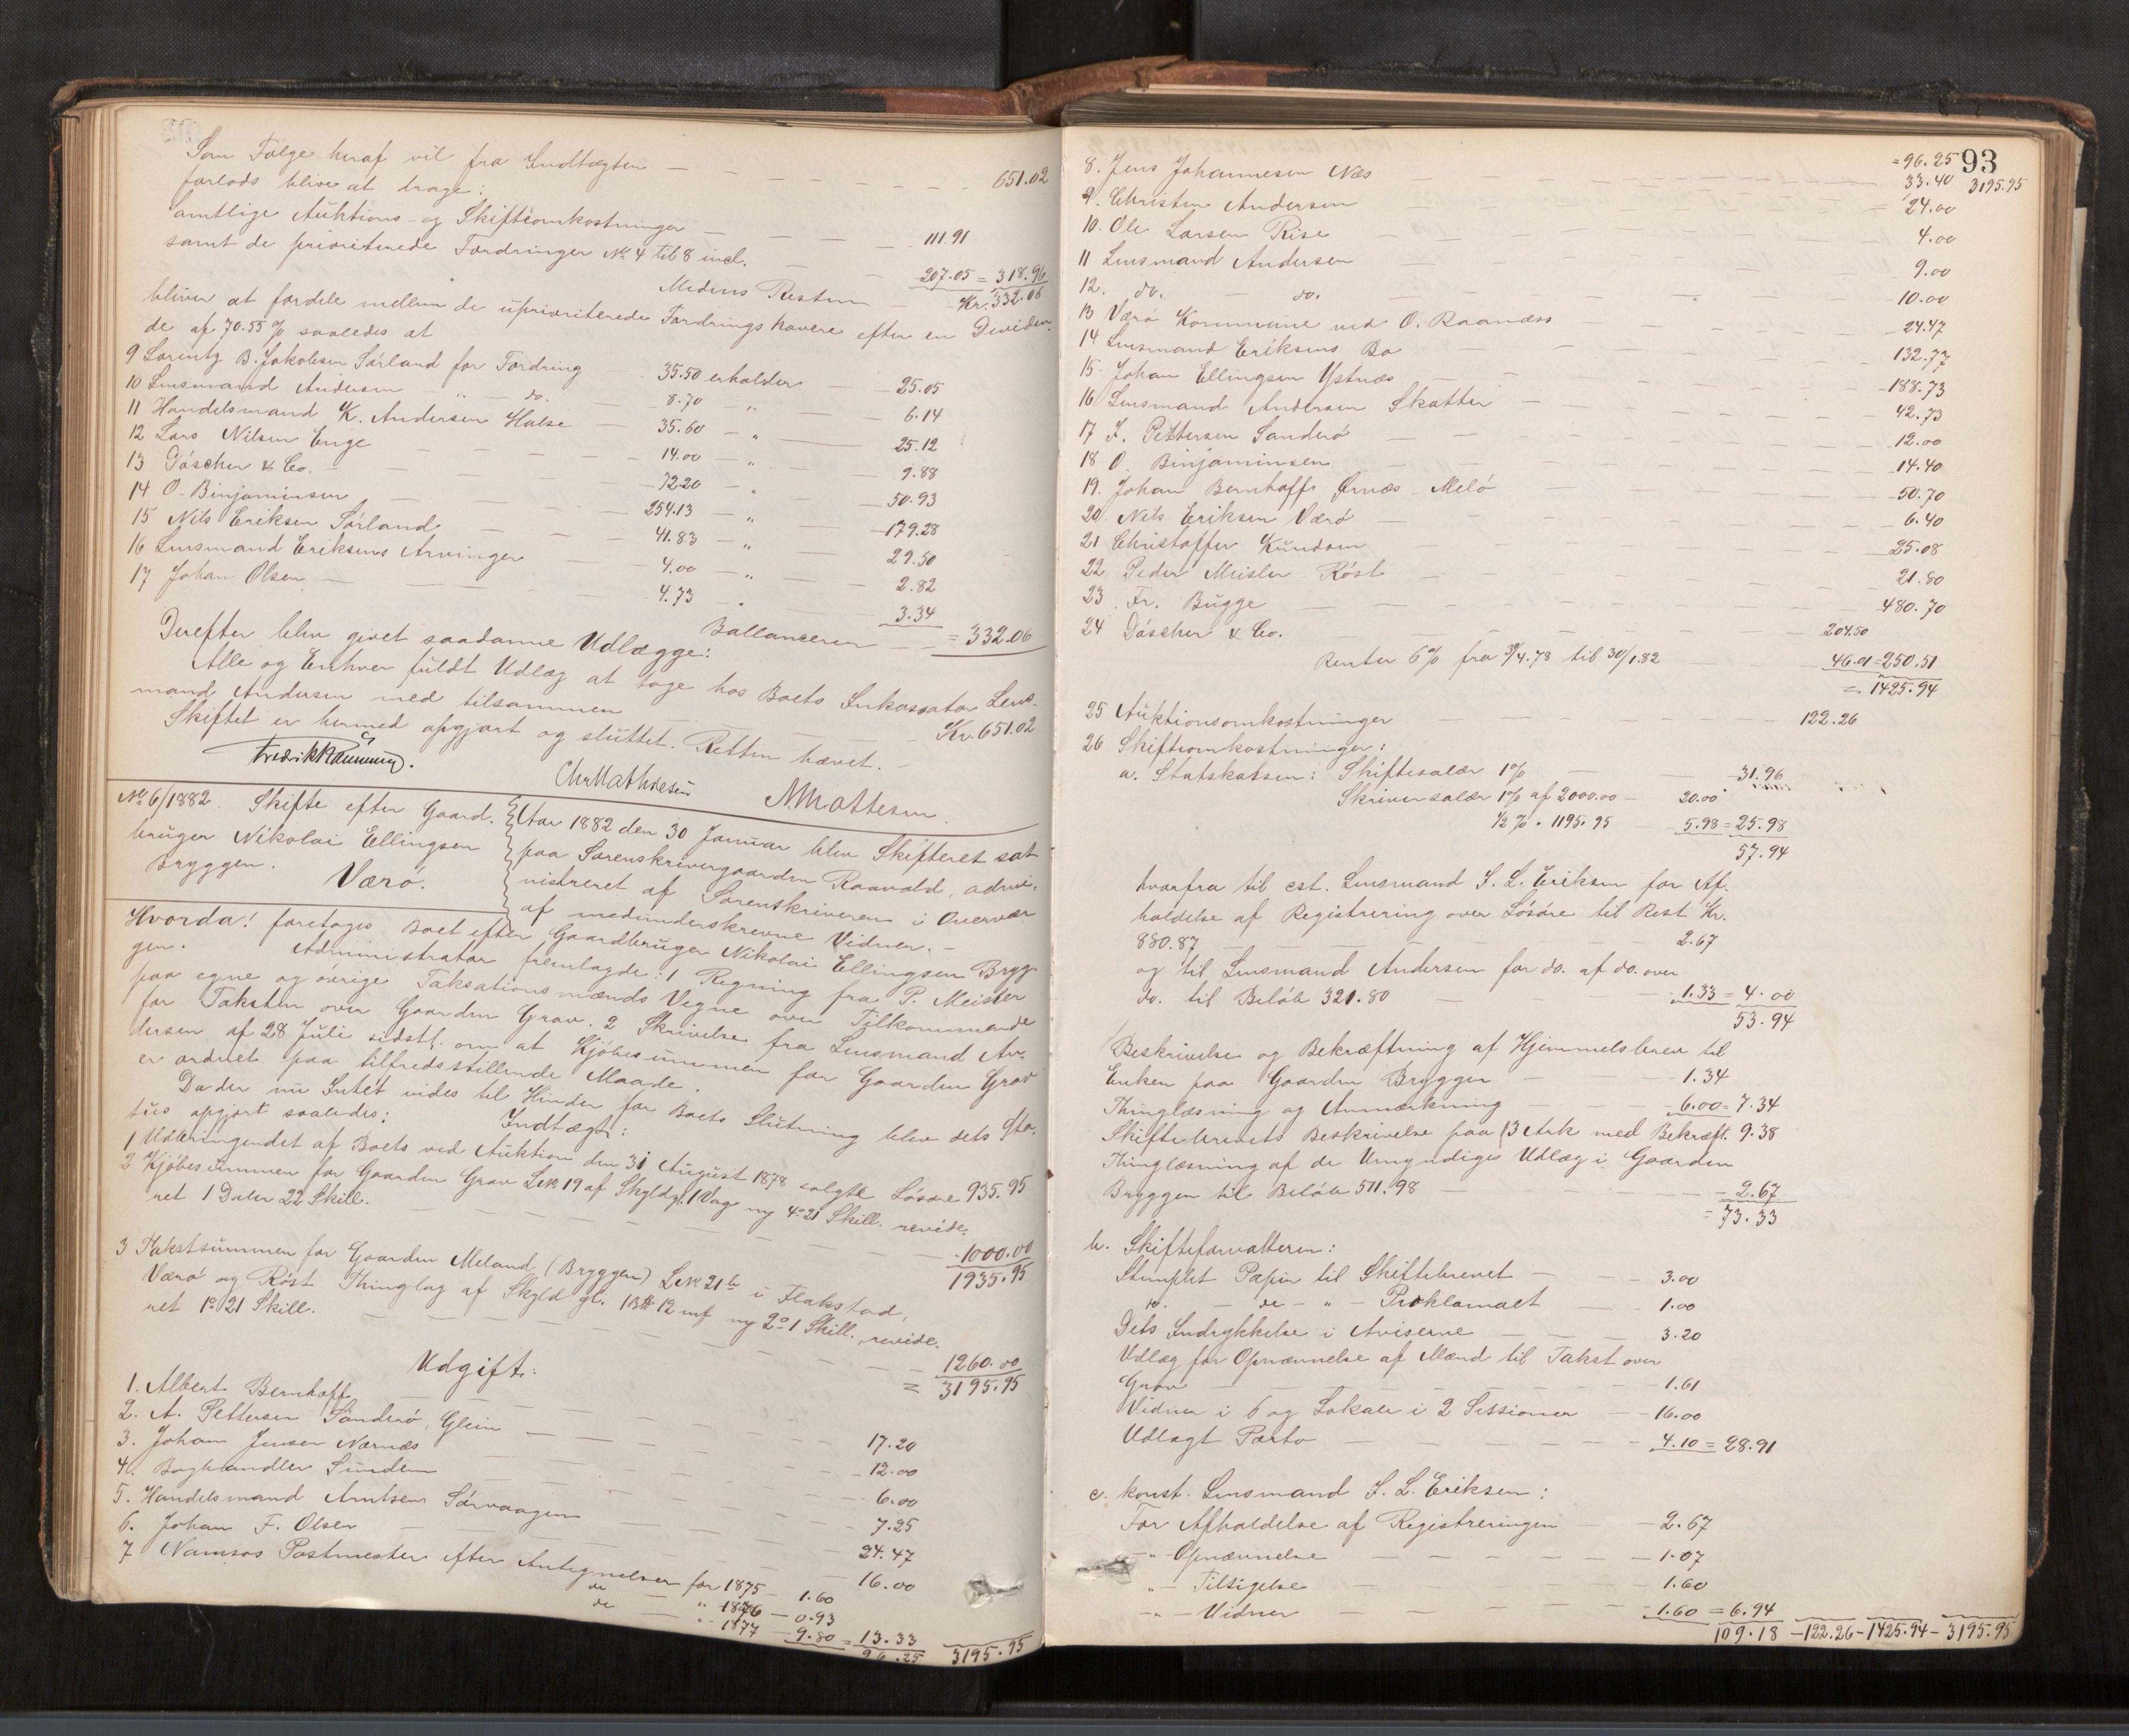 Som Følge heraf vil fra Indtægten — 651.02
forlods blive at drage:
Samtlige Auktions- og Skifteomkostninger — 111.91
samt de prioriterede Fordringer No 4 til 8 incl. — 207.05 = 318.96
Medens Resten Kr. 332.06
bliver at fordele mellem de uprioriterede Fordringshavere efter en Dividen-
de af 70.55 % saaledes at
9 Lorentz B. Jakobsen Sørland for Fordring 35.50 erholder — 25.05
10 Lensmand Andersen " do. 8.70 " — 6.14
11 Handelsmand K. Andersen Halse — 35.60 — " — 25.12
12 Lars Nilsen Enge — 14.00 — " — 9.88
13 Döscher & Co. — 72.20 — " — 50.93
14 O. Binjaminsen — 254.13 — " — 179.28
15 Nils Eriksen Sørland — 41.83 — " — 29.50
16 Lensmand Eriksens Arvinger — 4.00 — " — 2.82
17 Johan Olsen — 4.73 — " — 3.34
Ballancerer — = 332.06
Derefter blev givet saadanne Udlægge:
Alle og Enhver fuldt Udlæg at tage hos Boets Inkassator Lens-
mand Andersen med tilsammen — Kr. 651.02
Skiftet er hermed opgjort og sluttet. Retten hævet. —
Chr Mathiesen
M Mattesen.
No 6/1882. Skifte efter Gaard-
bruger Nikolai Ellingsen
Bryggen.
Værø.
Aar 1882 den 30 Januar blev Skifteret sat
paa Sorenskrivergaarden Ramvold, admi-
nistreret af Sorenskriveren i Overvær
af medunderskrevne Vidner. —
Hvorda! foretoges Boet efter Gaardbruger Nikolai Ellingsen Bryg-
gen. Administrator fremlagde: 1 Regning fra P. Meisler
paa egne og øvrige Taksationsmænds Vegne over Tilkommende
for Taksten over Gaarden Grav. 2 Skrivelse fra Lensmand An-
dersen af 28 Juli sidstl. om at Kjøbesummen for Gaarden Grav
er ordnet paa tilfredsstillende Maade.
Da der nu Intet vides til Hinder for Boets Slutning blev dets Sta-
tus opgjort saaledes:
Indtægt:
1 Udbringendet af Boets ved Auktion den 31 August 1878 solgte Løsøre 935.95
2 Kjøbesummen for Gaarden Grav LNo 19 af Skyld gl. 1 Vog ny 4-21 Skill. revide-
ret 1 Daler 22 Skill. — 1000.00
1935.95
3 Takstsummen for Gaarden Meland (Bryggen) LNo 21b i Flakstad,
Værø og Røst Thinglag af Skyld gl. 1 B℔ 12 mk ny 2-1 Skill., revide-
ret 1-21 Skill. — 1260.00
= 3195.95
Udgift:
1. Albert Bernhoff — 17.20
2. A. Pettersen Sanderø, Glein — 12.00
3. Johan Jensen Nærnæs — 6.00
4. Boghandler Sundem — 7.25
5. Handelsmand Arntsen Sørvaagen — 24.47
6. Johan F. Olsen — 16.00
7 Namsos Postmester efter Antegnelser for 1875 — 1.60
do " 1876 — 0.93
do " 1877 — 9.80 = 13.33
96.25 3195.95
93
= 96.25 3195.95
8. Jens Johannesen Næs — 33.40
9. Christen Andersen — 24.00
10. Ole Larsen Rise — 4.00
11 Lensmand Andersen — 9.00
12. do. — do. — 10.00
13 Værø Kommune ved O. Raanæss — 24.47
14 Lensmand Eriksens Bo — 132.77
15. Johan Ellingsen Ystnæs — 188.73
16 Lensmand Andersen Skatter — 42.73
17 J. Pettersen Sanderø — 12.00
18 O. Binjaminsen — 14.40
19. Johan Bernhoff Ørnæs Melø — 50.70
20. Nils Eriksen Værø — 6.40
21 Christoffer Kundsen — 25.08
22 Peder Meisler Røst — 21.80
23. Fr. Bugge — 480.70
24 Döscher & Co. — 204.50
Renter 6 % fra 30/4.78 til 30/1.82 — 46.01 = 250.51
= 1425.94
25 Auktionsomkostninger — 122.26
26 Skifteomkostninger:
a. Statskassen: Skiftesalær 1 % — 31.96
Skriversalær 1 % af 2000.00 — 20.00
½ % " 1195.95 — 5.98 = 25.98
57.94
hvorfra til cst. Lensmand S. L. Eriksen for Af-
holdelse af Registrering over Løsøre til Rest Kr.
880.87 — 2.67
og til Lensmand Andersen for do. af do. over
do. til Beløb 321.80 — 1.33 = 4.00
53.94
Beskrivelse og Bekræftning af Hjemmelsbrev til
Enken paa Gaarden Bryggen — 1.34
Thinglæsning og Anmærkning — 6.00 = 7.34
Skiftebrevets Beskrivelse paa 13 Ark med Bekræft. 9.38
Thinglæsning af de Umyndiges Udlæg i Gaarden
Bryggen til Beløb 511.98 — 2.67
= 73.33
b. Skifteforvalteren:
Stemplet Papir til Skiftebrevet — 3.00
do. — do — " — Proklamaet — 1.00
Dets Indrykkelse i Aviserne — 3.20
Udlæg for Opnævnelse af Mænd til Takst over
Grav — 1.61
Vidner i 6 og Lokale i 2 Sessioner — 16.00
Udlagt Porto — 4.10 = 28.91
c. konst. Lensmand S. L. Eriksen:
For Afholdelse af Registreringen — 2.67
" Opnævnelse — 1.07
" — Tilsigelse — 1.60
" — Vidner — 1.60 = 6.94
109.18 — 122.26 — 1425.94 — 3195.95